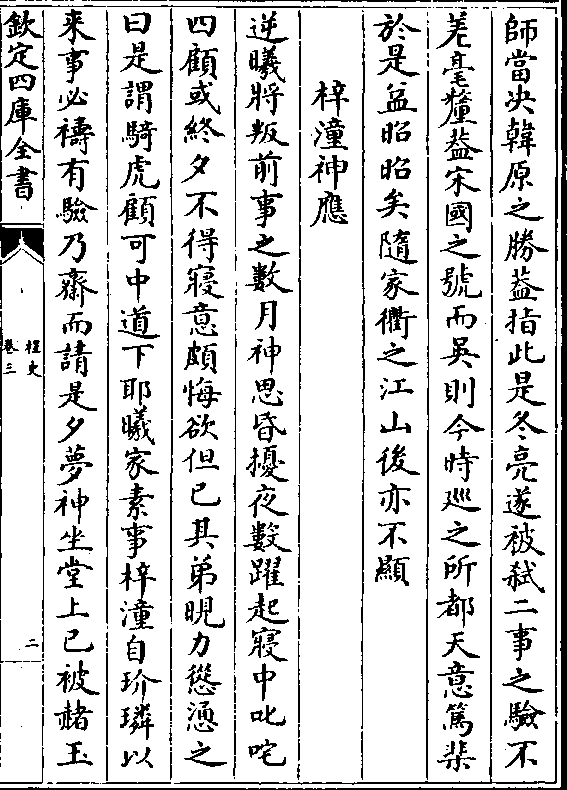 師當决韓原之勝葢指此是冬亮遂被弑二事之驗不
差毫釐葢宋國之號而吳則今時廵之所都天意篤棐
於是益昭昭矣隨家衢之江山後亦不顯
梓潼神應
逆曦將叛前事之數月神思昏擾夜數躍起寢中叱咤
四顧或終夕不得寢意頗悔欲但已其弟晛力慫慂之
曰是謂騎虎顧可中道下耶曦家素事梓潼自玠璘以
来事必禱有驗乃齋而請是夕夢神坐堂上已被赭玉
欽定四庫全書
桯史
卷三
二